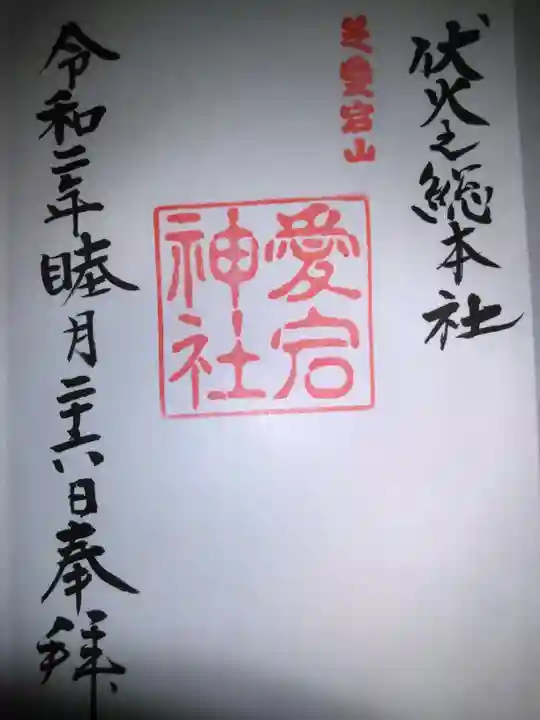 伏火之総本社
芝愛宕山
愛宕
神社
令和二年睦月二十六日奉拝